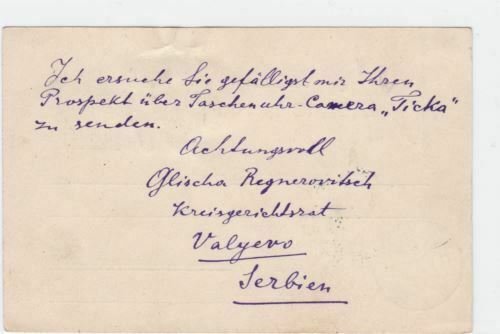 Ich ersuche Sie gefälligst mir Ihren
Prospekt über Taschenuhr-Camera „Ticka“
zu senden.
Achtungsvoll
Glischa Regnerovitsch
Kreisgerichtsrat
Valyevo
Serbien